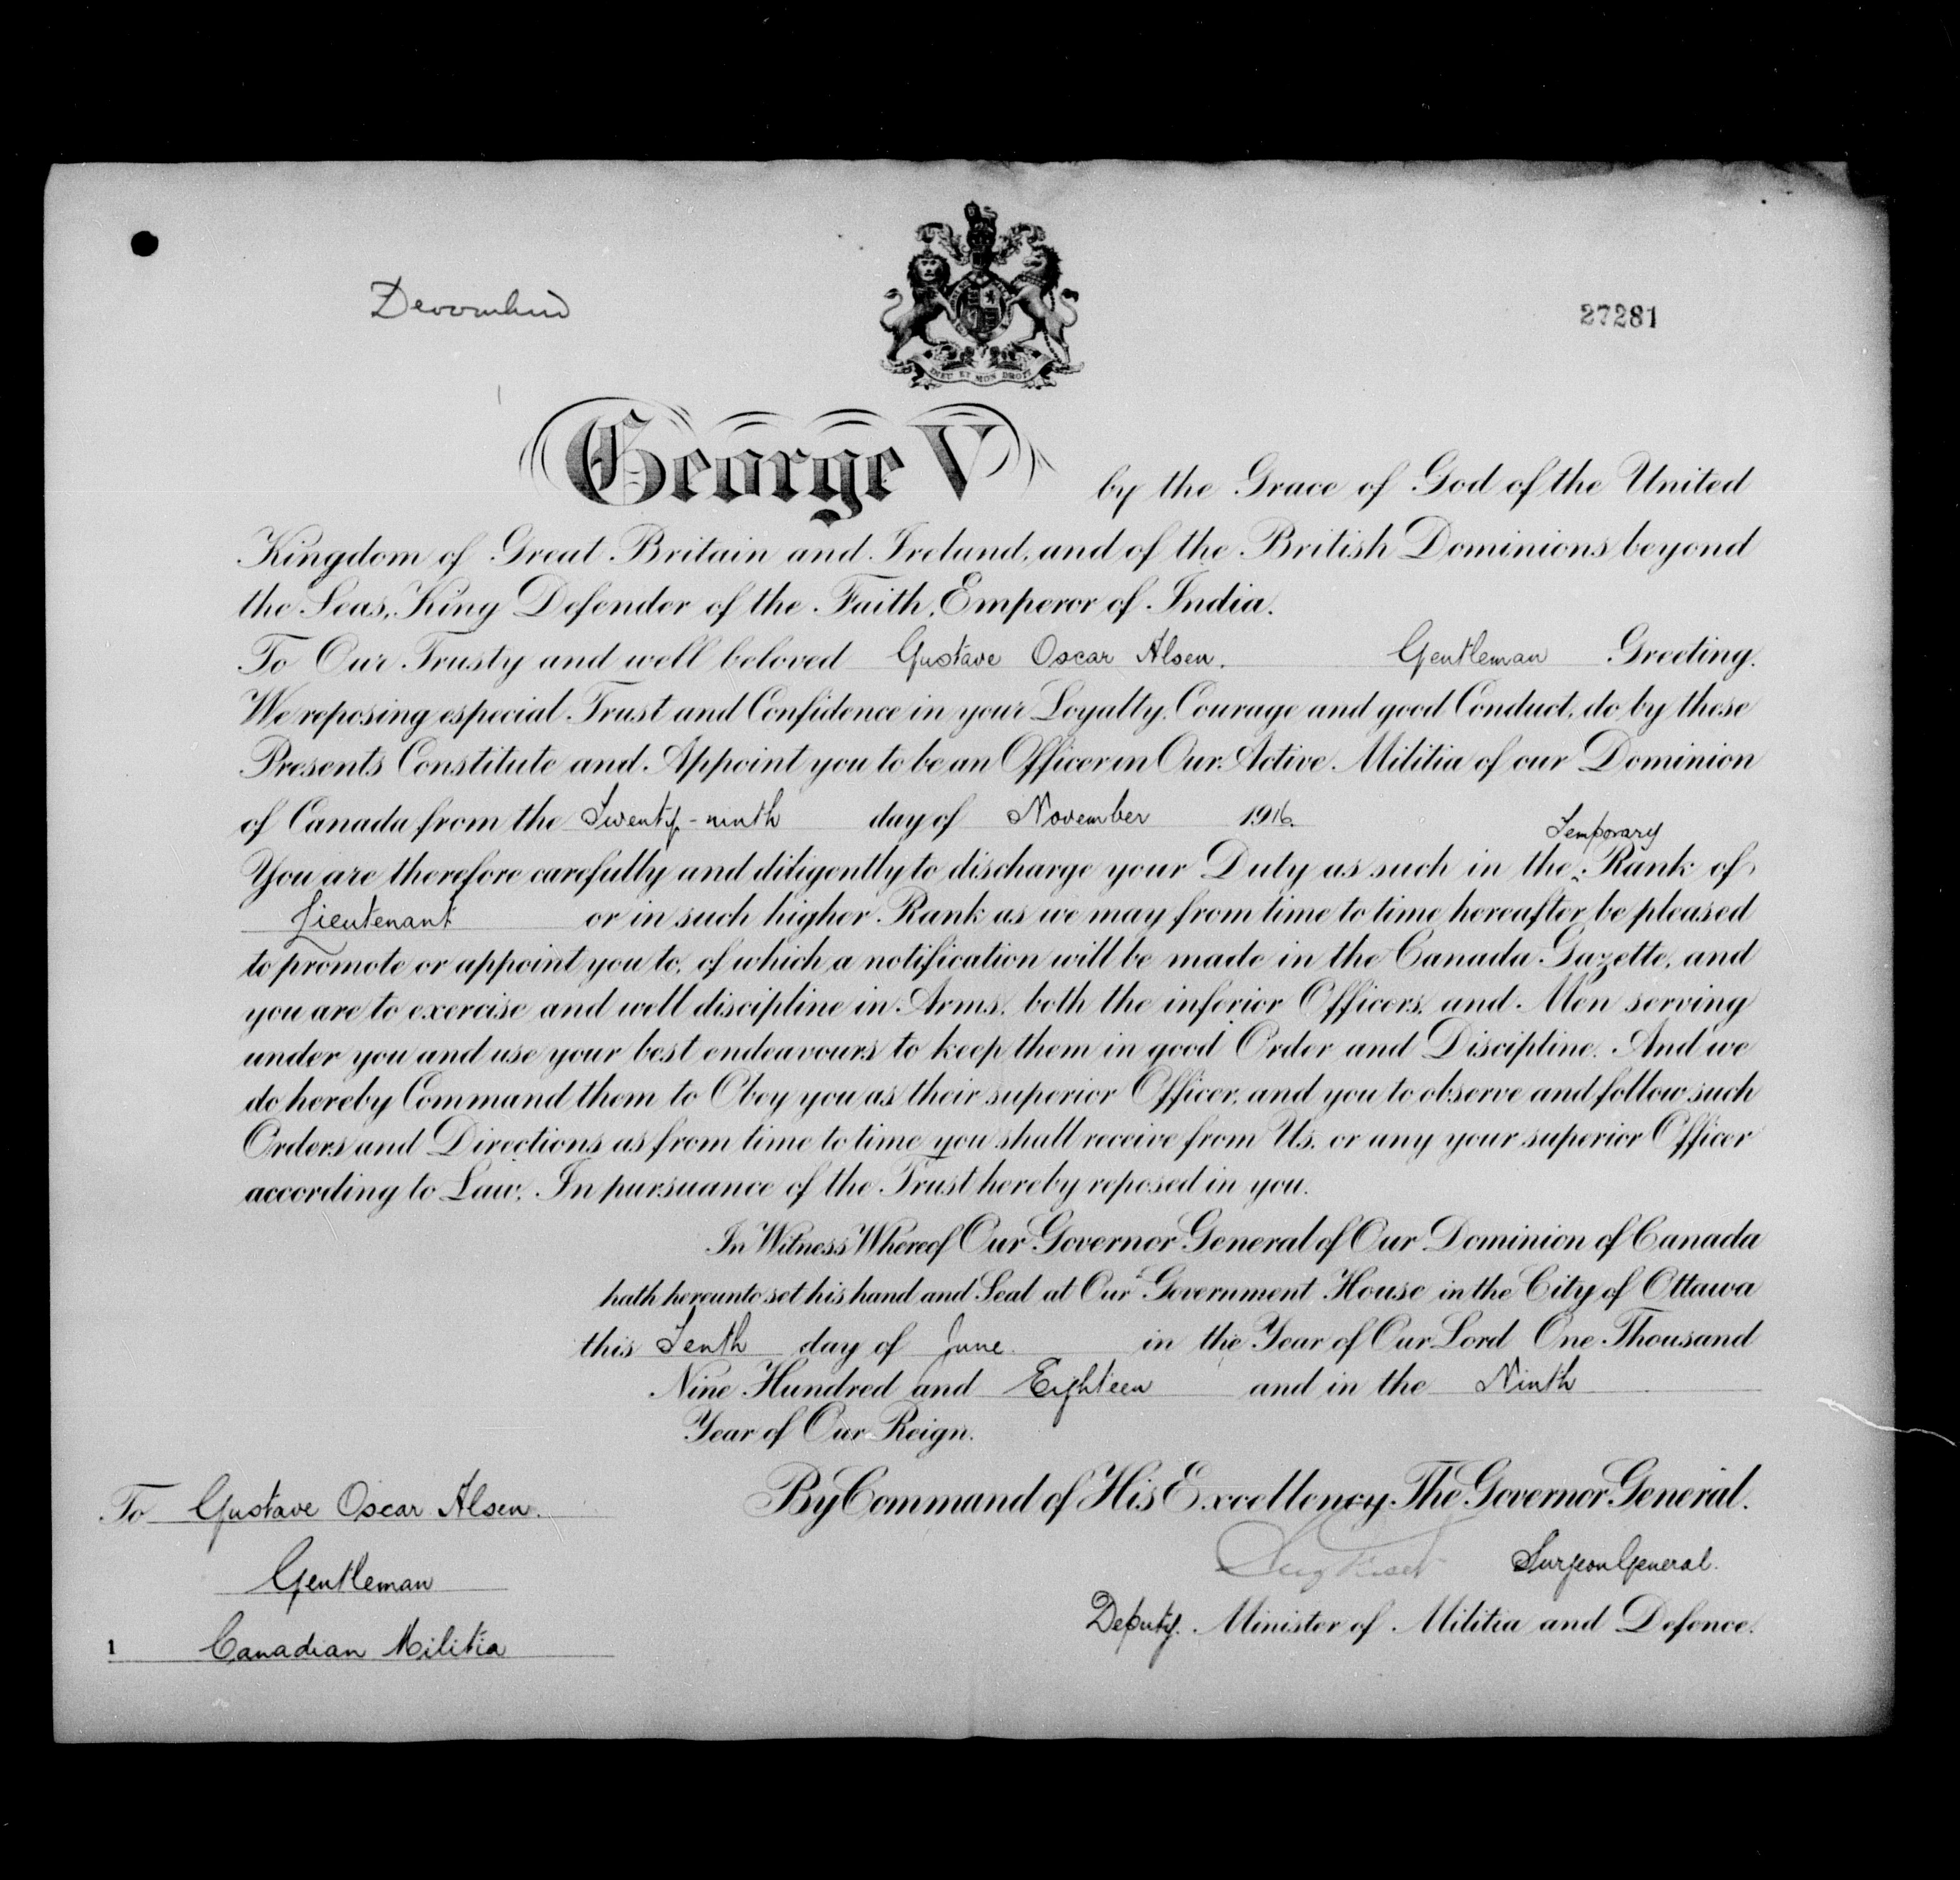 Devonshire
27281
DIEU ET MON DROIT
George V by the Grace of God of the United
Kingdom of Great Britain and Ireland, and of the British Dominions beyond
the Seas, King Defender of the Faith, Emperor of India.
To Our Trusty and well beloved Gustave Oscar Alsen. Gentleman Greeting.
We reposing especial Trust and Confidence in your Loyalty, Courage and good Conduct, do by these
Presents Constitute and Appoint you to be an Officer in Our Active Militia of our Dominion
of Canada from the Twenty-ninth day of November 1916.
Temporary
You are therefore carefully and diligently to discharge your Duty as such in the Rank of
Lieutenant or in such higher Rank as we may from time to time hereafter be pleased
to promote or appoint you to, of which a notification will be made in the Canada Gazette, and
you are to exercise and well discipline in Arms, both the inferior Officers, and Men serving
under you and use your best endeavours to keep them in good Order and Discipline. And we
do hereby Command them to Obey you as their superior Officer, and you to observe and follow such
Orders and Directions as from time to time you shall receive from Us, or any your superior Officer
according to Law, In pursuance of the Trust hereby reposed in you.
In Witness Whereof Our Governor General of Our Dominion of Canada
hath hereunto set his hand and Seal at Our Government House in the City of Ottawa
this Tenth day of June in the Year of Our Lord One Thousand
Nine Hundred and Eighteen and in the Ninth
Year of Our Reign.
By Command of His Excellency The Governor General.
Surgeon General.
Deputy. Minister of Militia and Defence.
To Gustave Oscar Alsen.
Gentleman
1 Canadian Militia